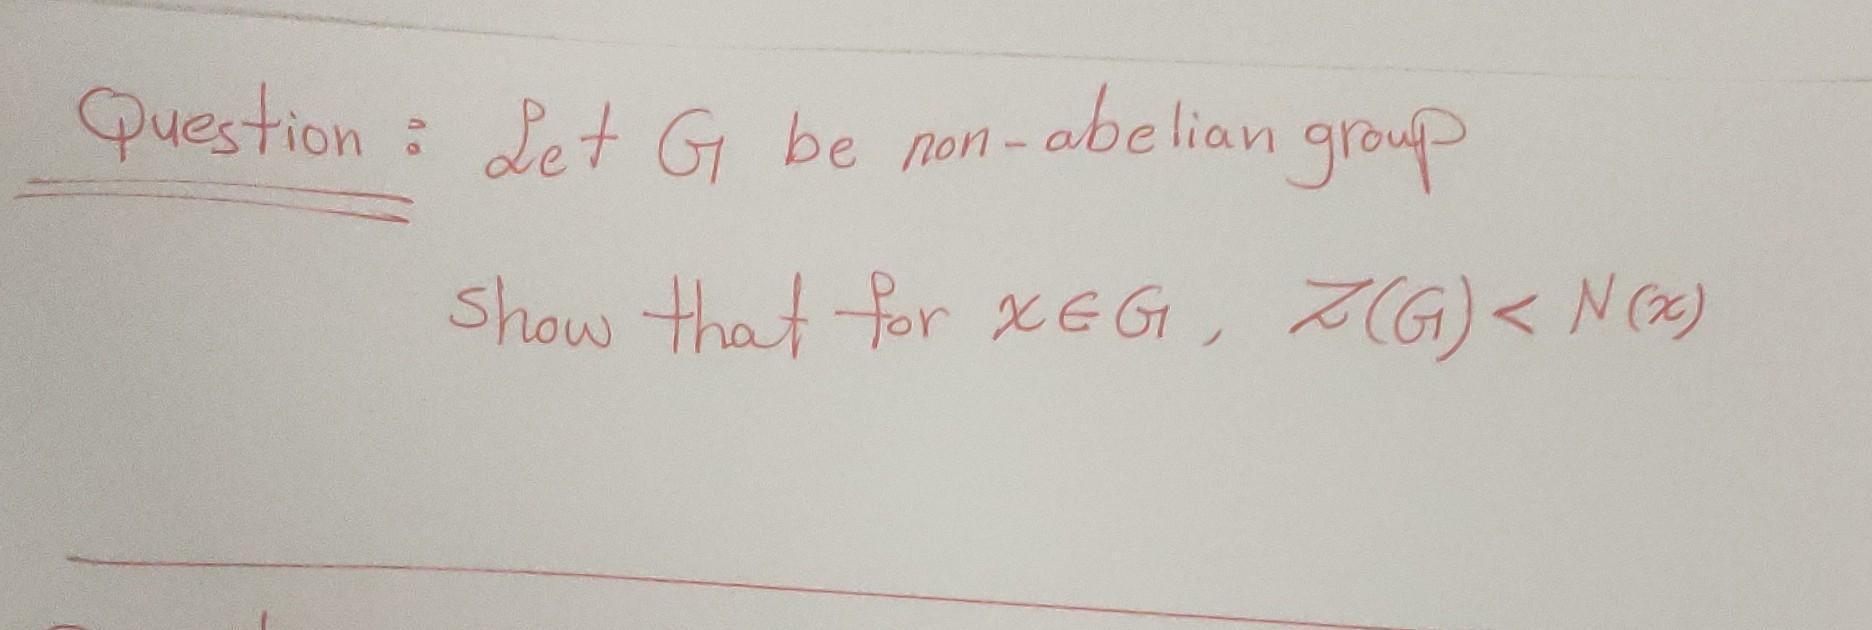 Question : Let G be non-abelian group
show that for x ∈ G, Z(G) < N(x)